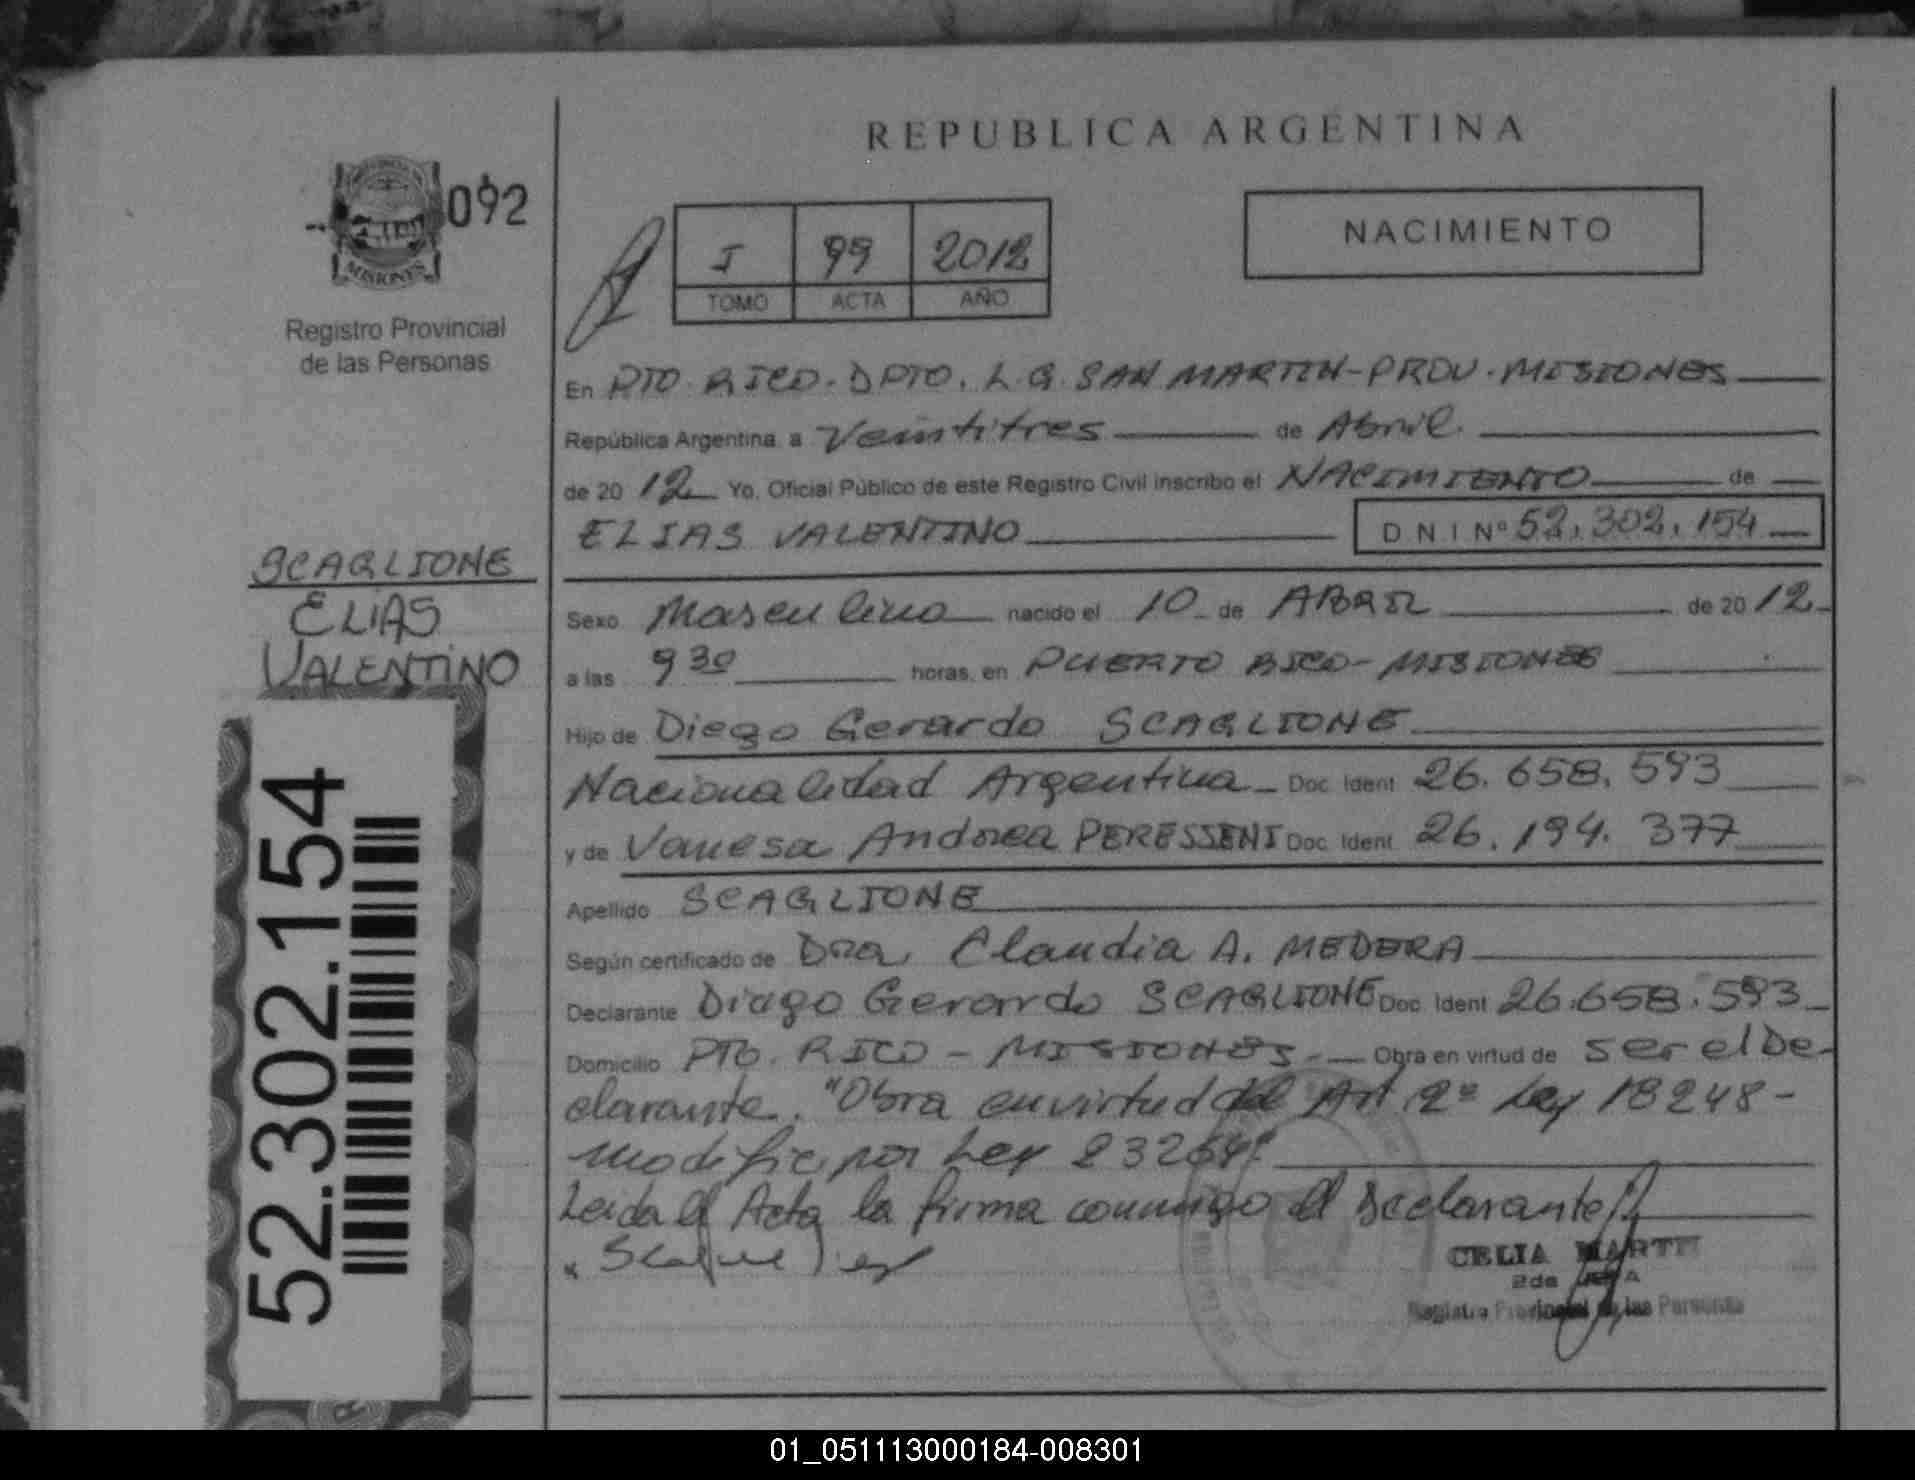 REPUBLICA ARGENTINA
092
MISIONES
Registro Provincial
de las Personas
I 99 2012
TOMO ACTA AÑO
NACIMIENTO
En PTO. RICO. DPTO. L.G. SAN MARTIN-PROV. MISIONES
República Argentina, a Veintitres de Abril.
de 20 12 Yo, Oficial Público de este Registro Civil inscribo el NACIMIENTO de
ELIAS VALENTINO D N I Nº 52.302.154
SCAGLIONE
ELIAS
VALENTINO
Sexo Masculino nacido el 10 de ABRIL de 20 12
a las 9 30 horas, en PUERTO RICO-MISIONES
Hijo de Diego Gerardo SCAGLIONE
Nacionalidad Argentina Doc. Ident 26.658.593
y de Vanesa Andrea PERESSINI Doc. Ident. 26.194.377
Apellido SCAGLIONE
Según certificado de Dra. Claudia A. MEDERA
Declarante Diego Gerardo SCAGLIONE Doc. Ident 26.658.593
Domicilio PTO. RICO - MISIONES Obra en virtud de ser el De-
clarante. "Obra en virtud del Art 2º Ley 18248-
modific. por Ley 23264"
Leida el Acta la firma conmigo el Declarante
52.302.154
CELIA MARTI
2da
Registro Provincial de las Personas
01_051113000184-008301